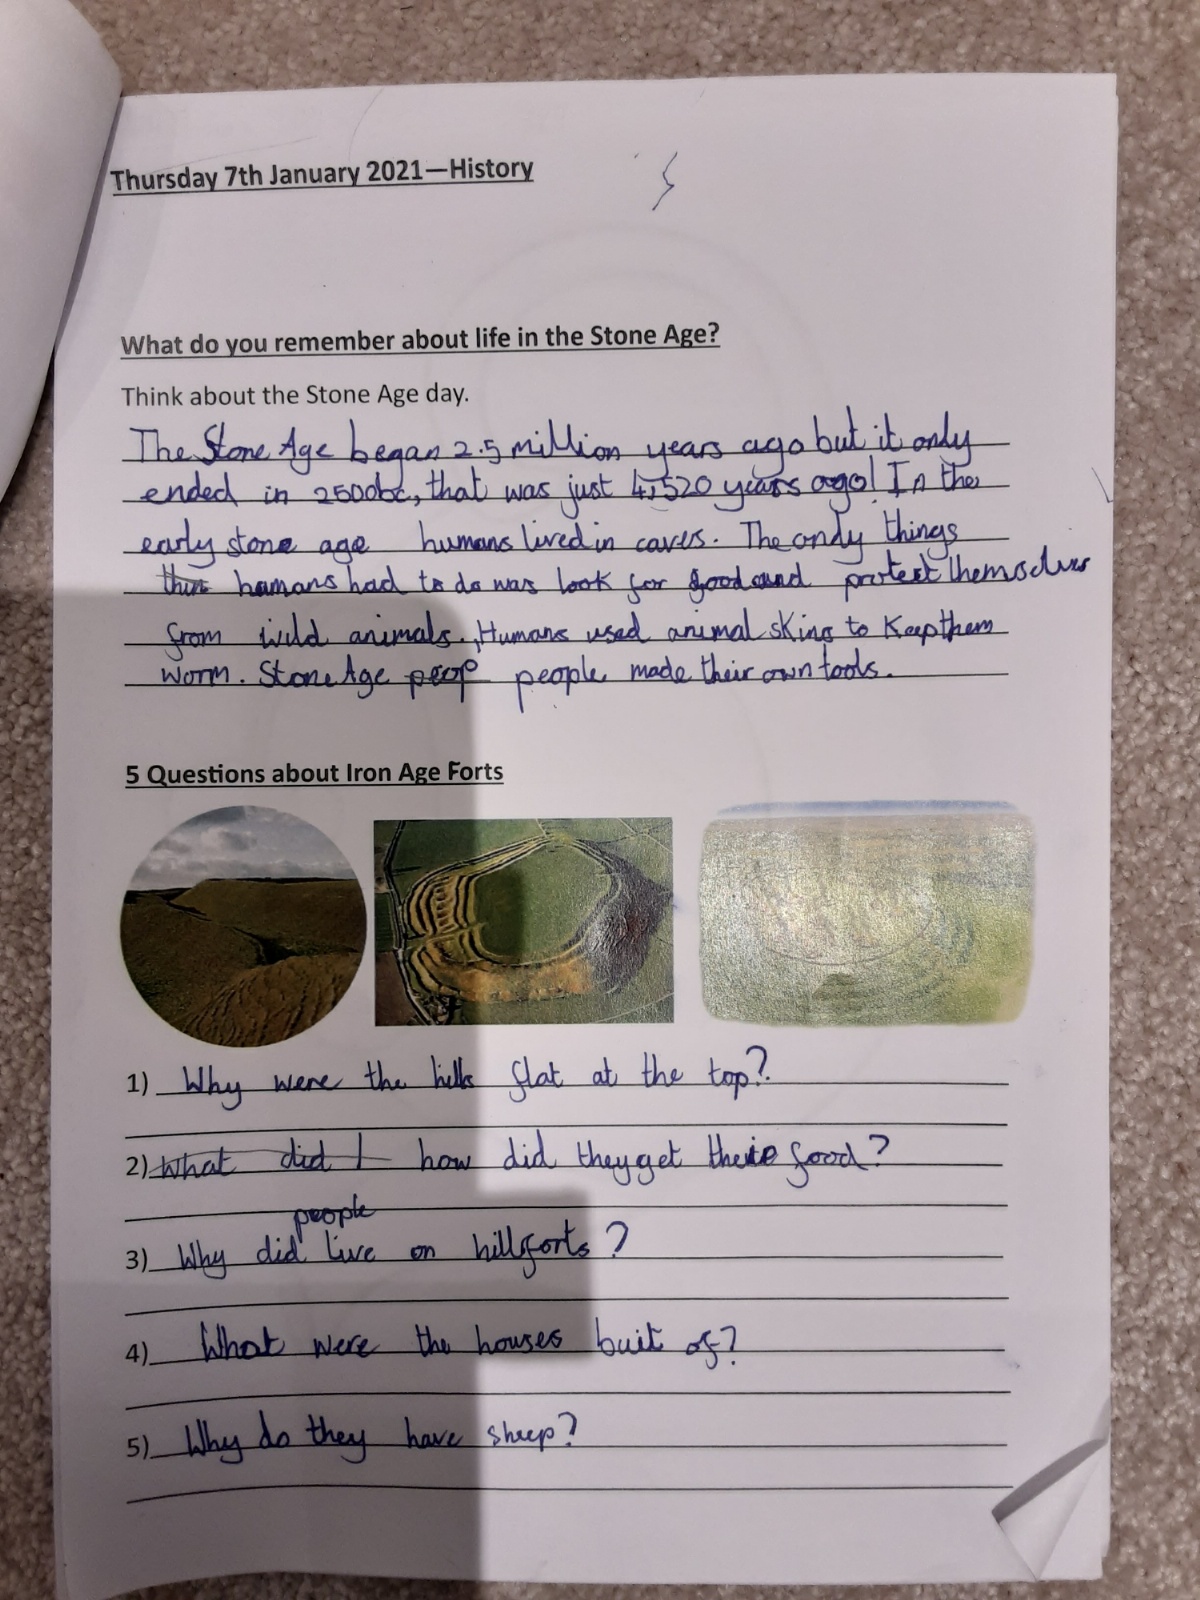 Thursday 7th January 2021—History
What do you remember about life in the Stone Age?
Think about the Stone Age day.
The Stone Age began 2.5 million years ago but it only
ended in 2500bc, that was just 4,520 years ago! In the
early stone age humans lived in caves. The only things
humans had to do was look for food and protect themselves
from wild animals. Humans used animal skins to keep them
worm. Stone Age peop people made their own tools.
5 Questions about Iron Age Forts
1) Why were the hills flat at the top?
2) What did how did they get their food?
people
3) Why did live on hillforts?
4) What were the houses buit of?
5) Why do they have sheep?